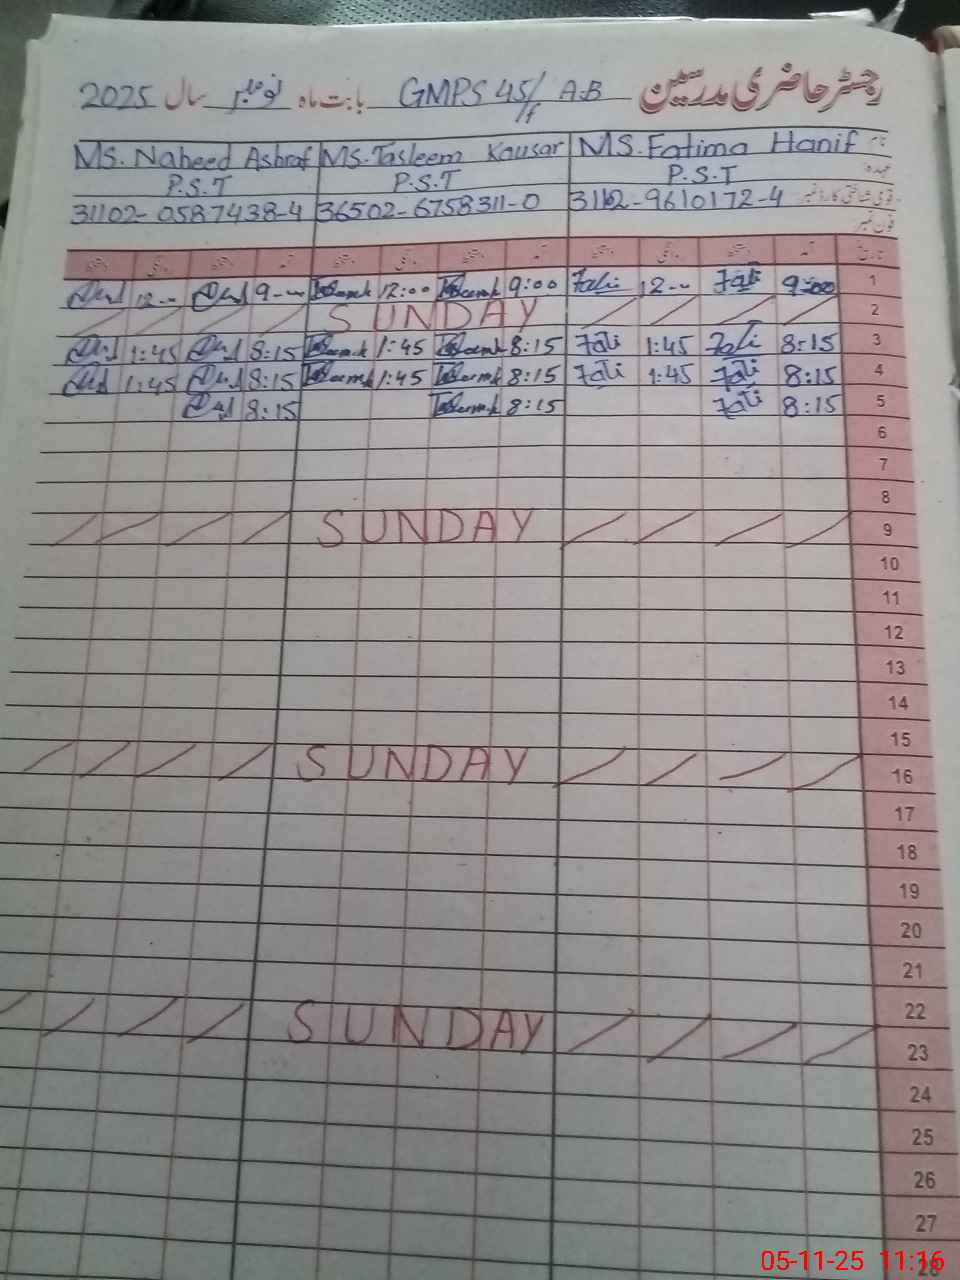 رجسٹر حاضری مدرسین GMPS 45/F A.B بابت ماہ نومبر سال 2025
نام MS. Fatima Hanif MS. Tasleem Kausar MS. Naheed Ashraf
عہدہ P.S.T P.S.T P.S.T
قومی شناختی کارڈ نمبر 31102-9610172-4 36502-6758311-0 31102-0587438-4
فون نمبر
تاریخ آمد دستخط روانگی دستخط آمد دستخط روانگی دستخط آمد دستخط روانگی دستخط
1 9:00 12-- 9:00 12:00 9-- 12--
2 SUNDAY
3 8:15 1:45 8:15 1:45 8:15 1:45
4 8:15 1:45 8:15 1:45 8:15 1:45
5 8:15 8:15 8:15
6
7
8
9 SUNDAY
10
11
12
13
14
15
16 SUNDAY
17
18
19
20
21
22
23 SUNDAY
24
25
26
27
28
05-11-25 11:16